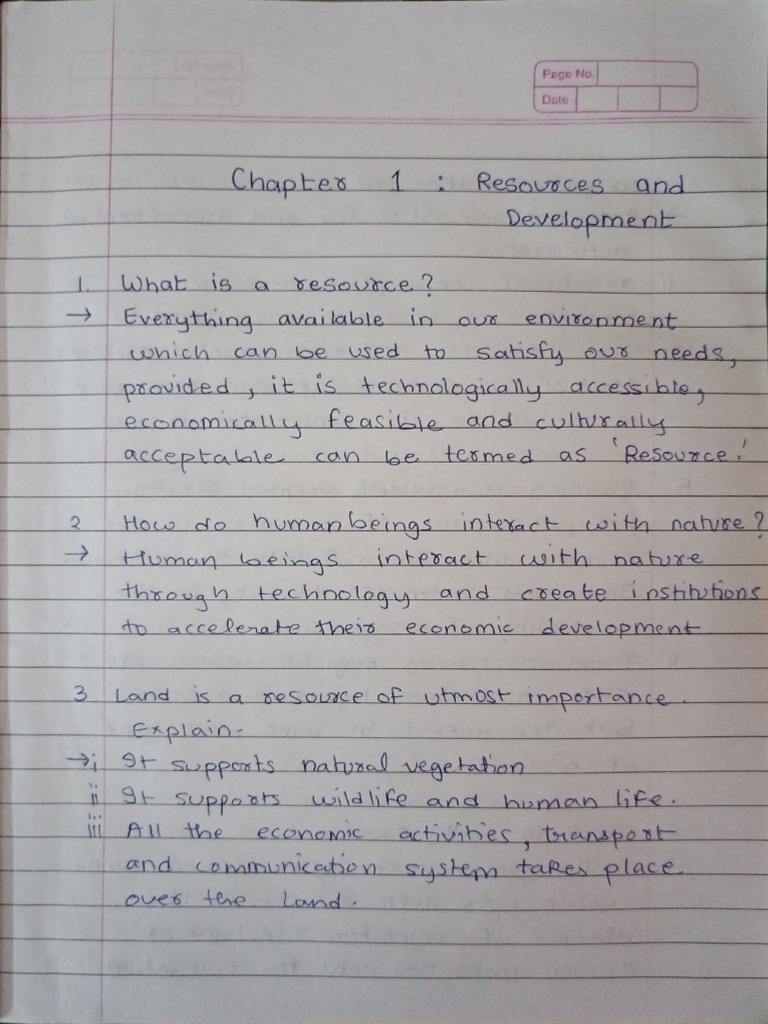 Page No.
Date
Chapter 1 : Resources and
Development
1. What is a resource?
→ Everything available in our environment
which can be used to satisfy our needs,
provided, it is technologically accessible,
economically feasible and culturally
acceptable can be termed as 'Resource.'
2 How do human beings interact with nature?
→ Human beings interact with nature
through technology and create institutions
to accelerate their economic development
3 Land is a resource of utmost importance.
Explain-
→ i It supports natural vegetation
ii It supports wildlife and human life.
iii All the economic activities, transport
and communication system takes place
over the land.